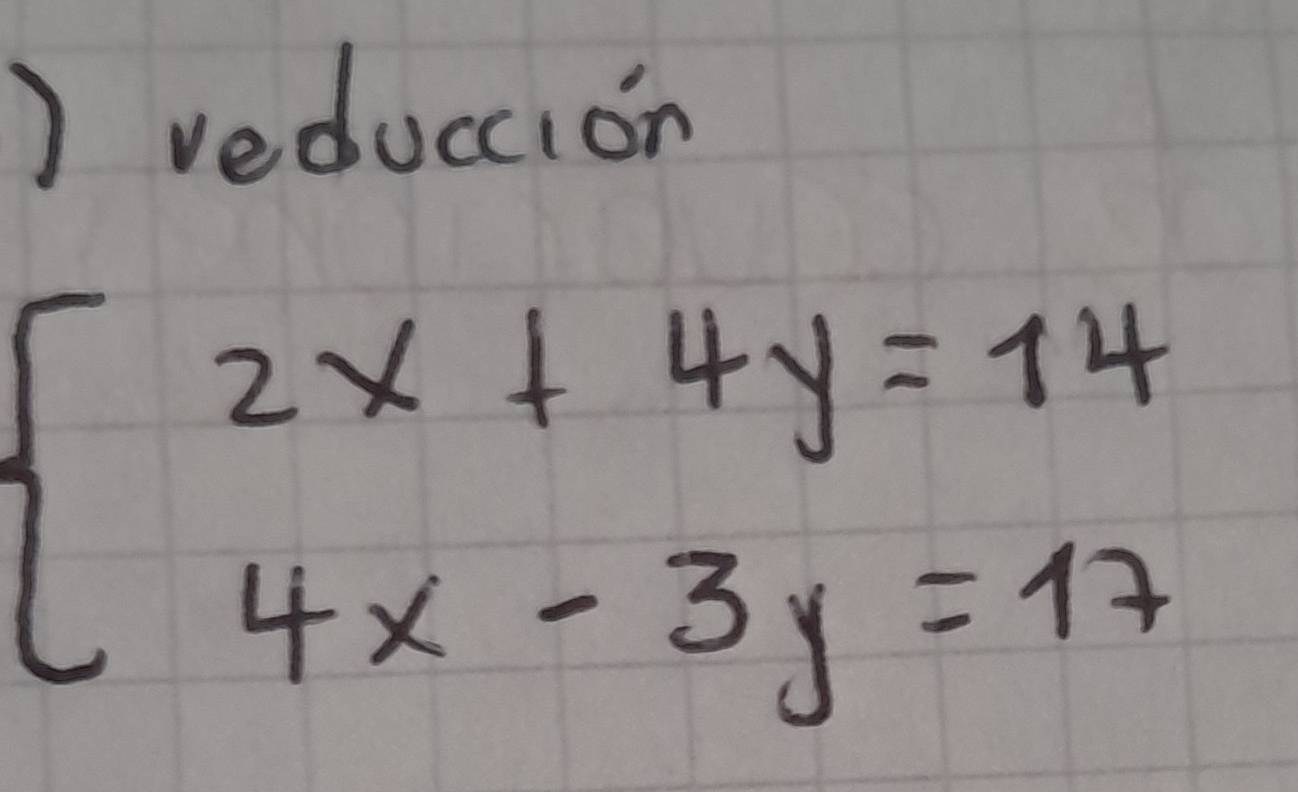 ) reducción
2x + 4y = 14
4x - 3y = 17